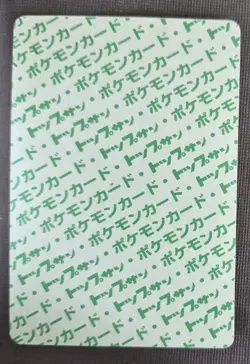 ポケモンカード・
トップサン・ポケモンカード・
ポケモンカード・トップサン・
トップサン・ポケモンカード・
ポケモンカード・トップサン・
トップサン・ポケモンカード・
ポケモンカード・トップサン・
トップサン・ポケモンカード・
ポケモンカード・トップサン・
トップサン・ポケモンカード・
ポケモンカード・トップサン・
トップサン・ポケモンカード・
ポケモンカード・トップサン・
トップサン・ポケモンカード